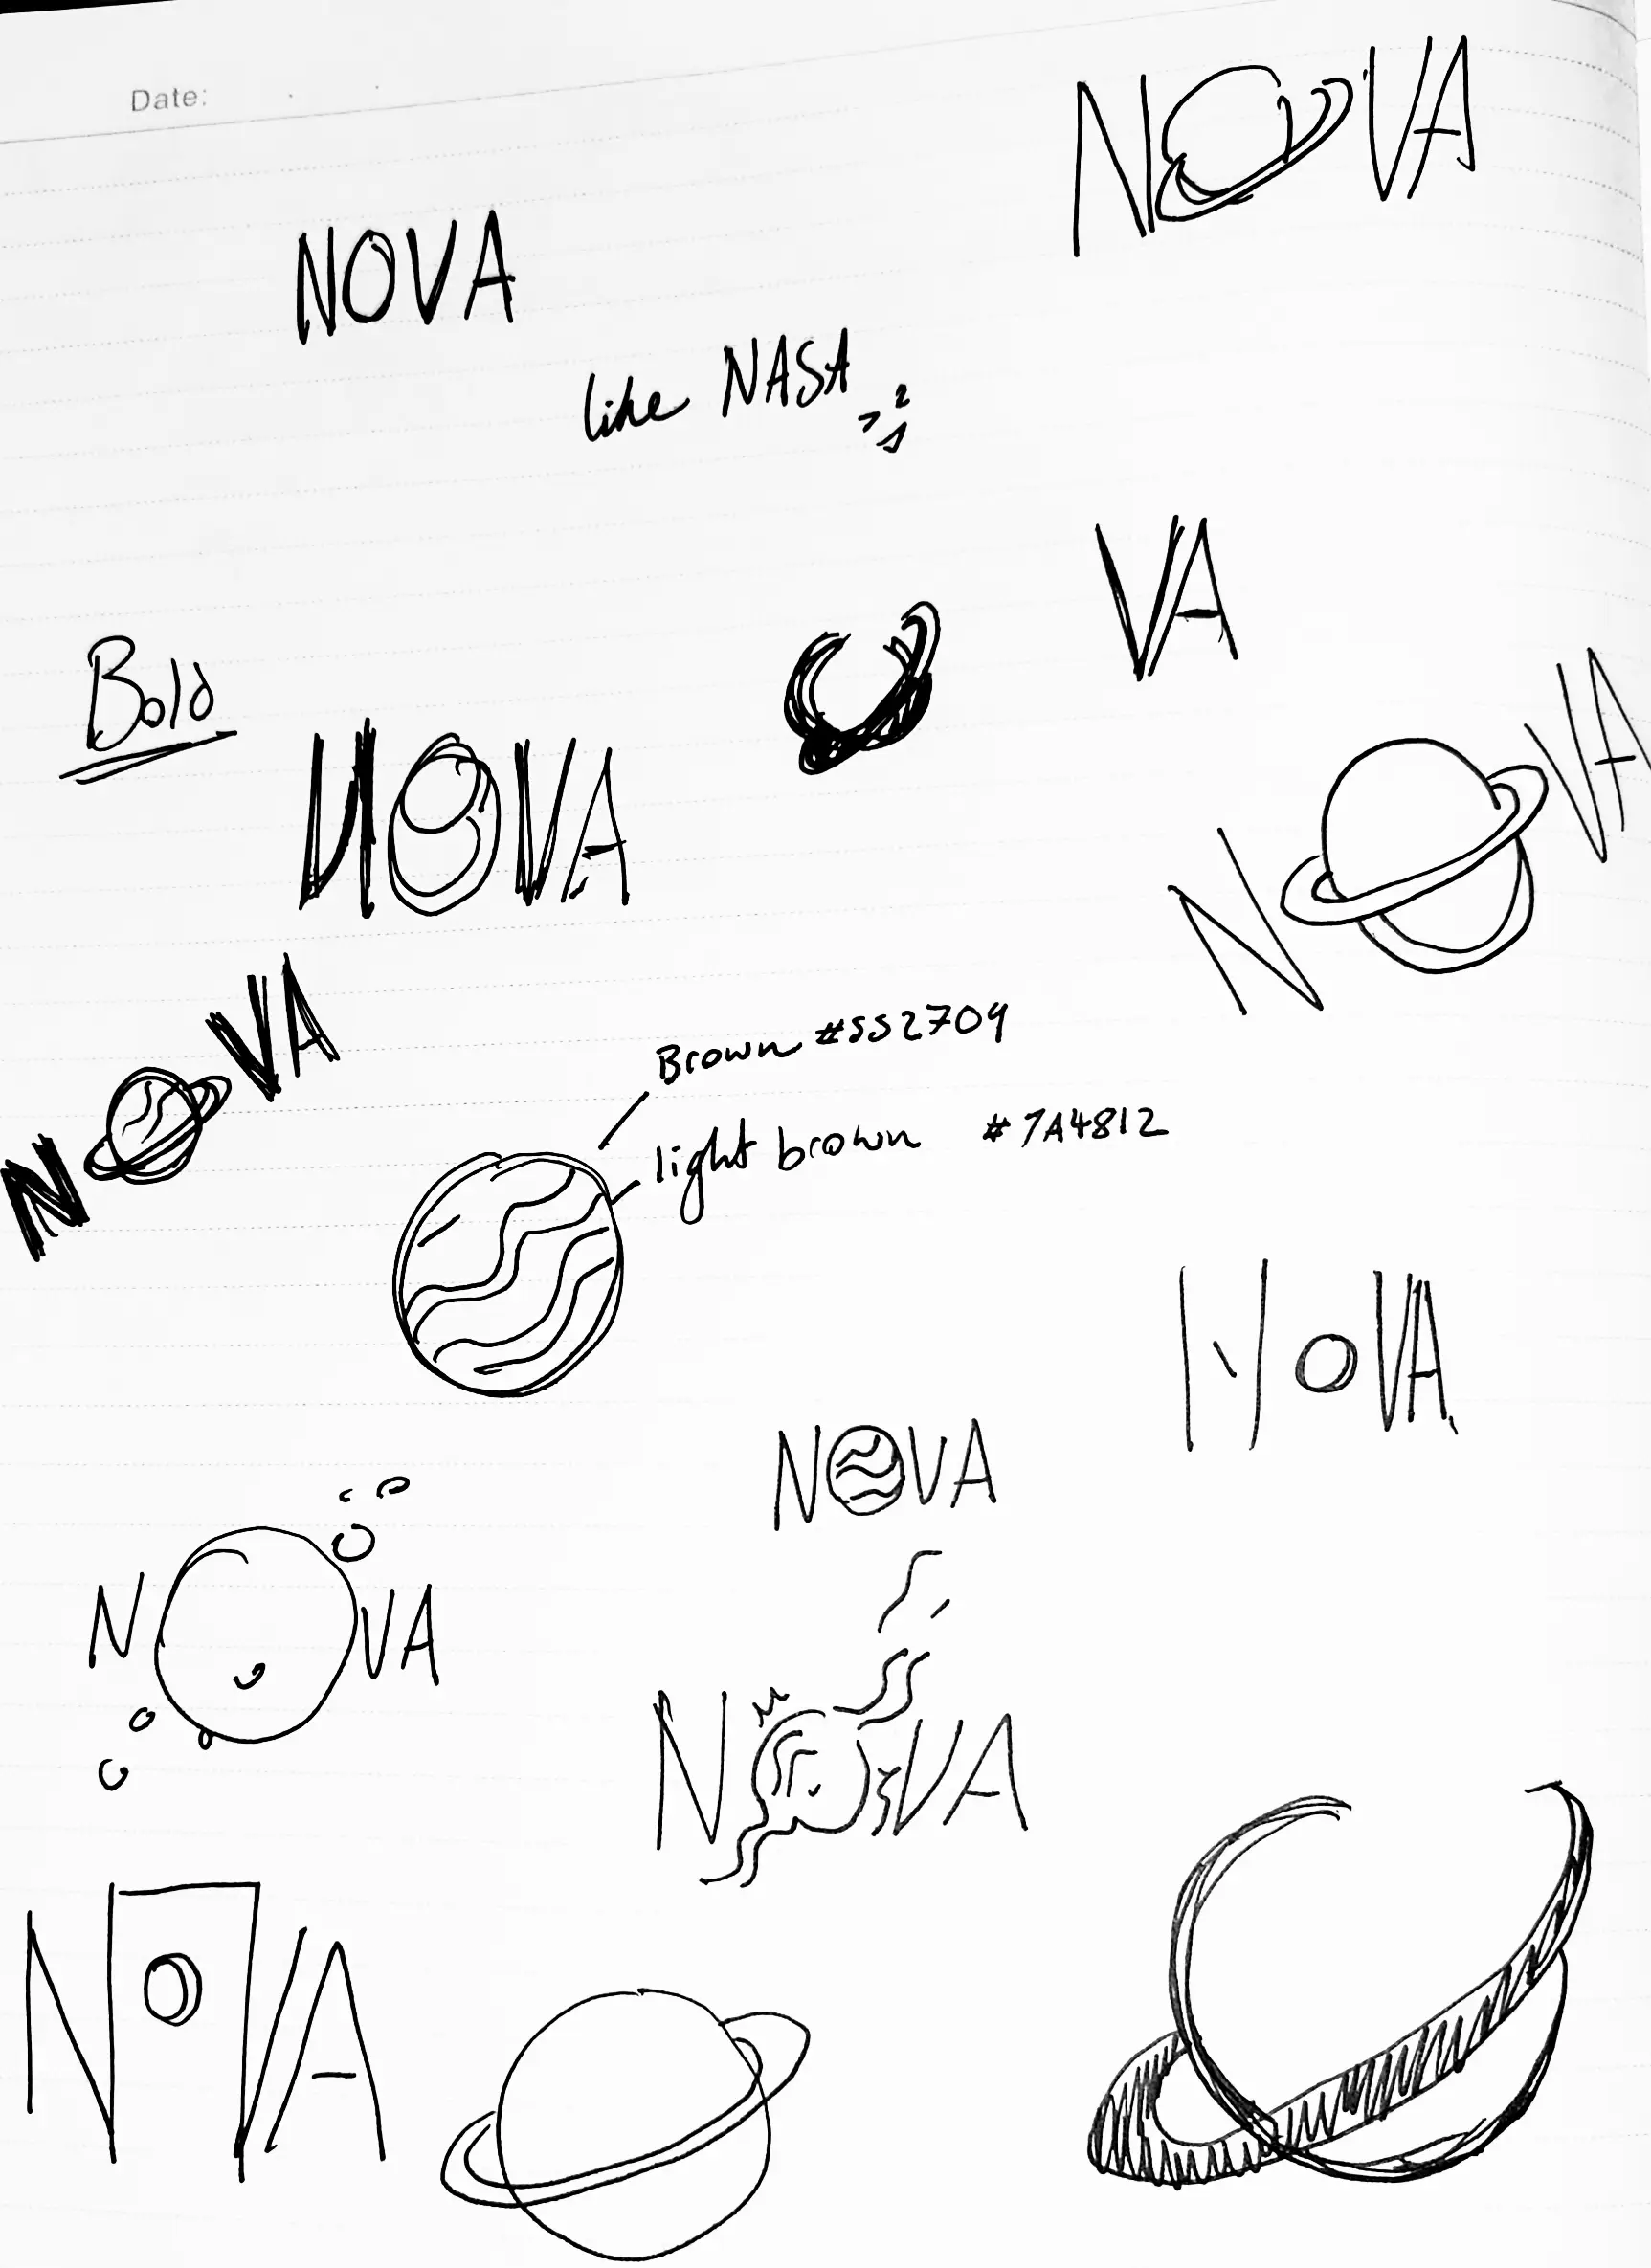 Date:
NOVA
NOVA
like NASA
VA
Bold
NOVA
NOVA
NOVA
Brown #552709
light brown #7A4812
NOVA
NOVA
NOVA
NOVA
NOVA